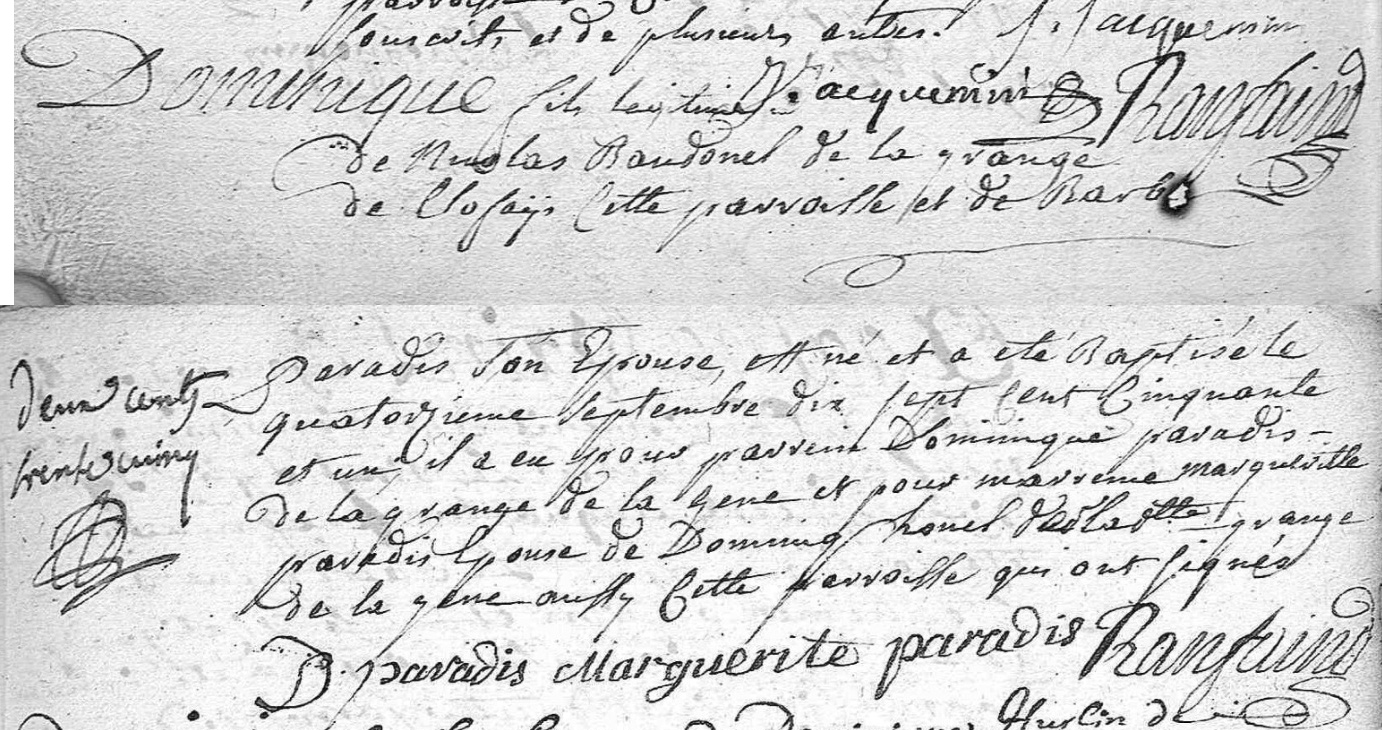 souscrits et de plusieurs autres. J. Jacquemin
Dominique fils legitime J. Jacquemin Ranfaing
de Nicolas Baudonel de la grange
de Clofays cette parroisse et de Barbe
paradis son Epouse, est né et a eté Baptisé le
deux cents
quatorzieme septembre dix sept cent Cinquante
et un, il a eu pour parrein Dominique paradis
trente cinq
de la grange de la gene et pour marreine margueritte
paradis Epouse de Dominiq honel de grange
de la gene aussy cette parroisse qui ont signés
D. paradis Marguerite paradis Ranfaing